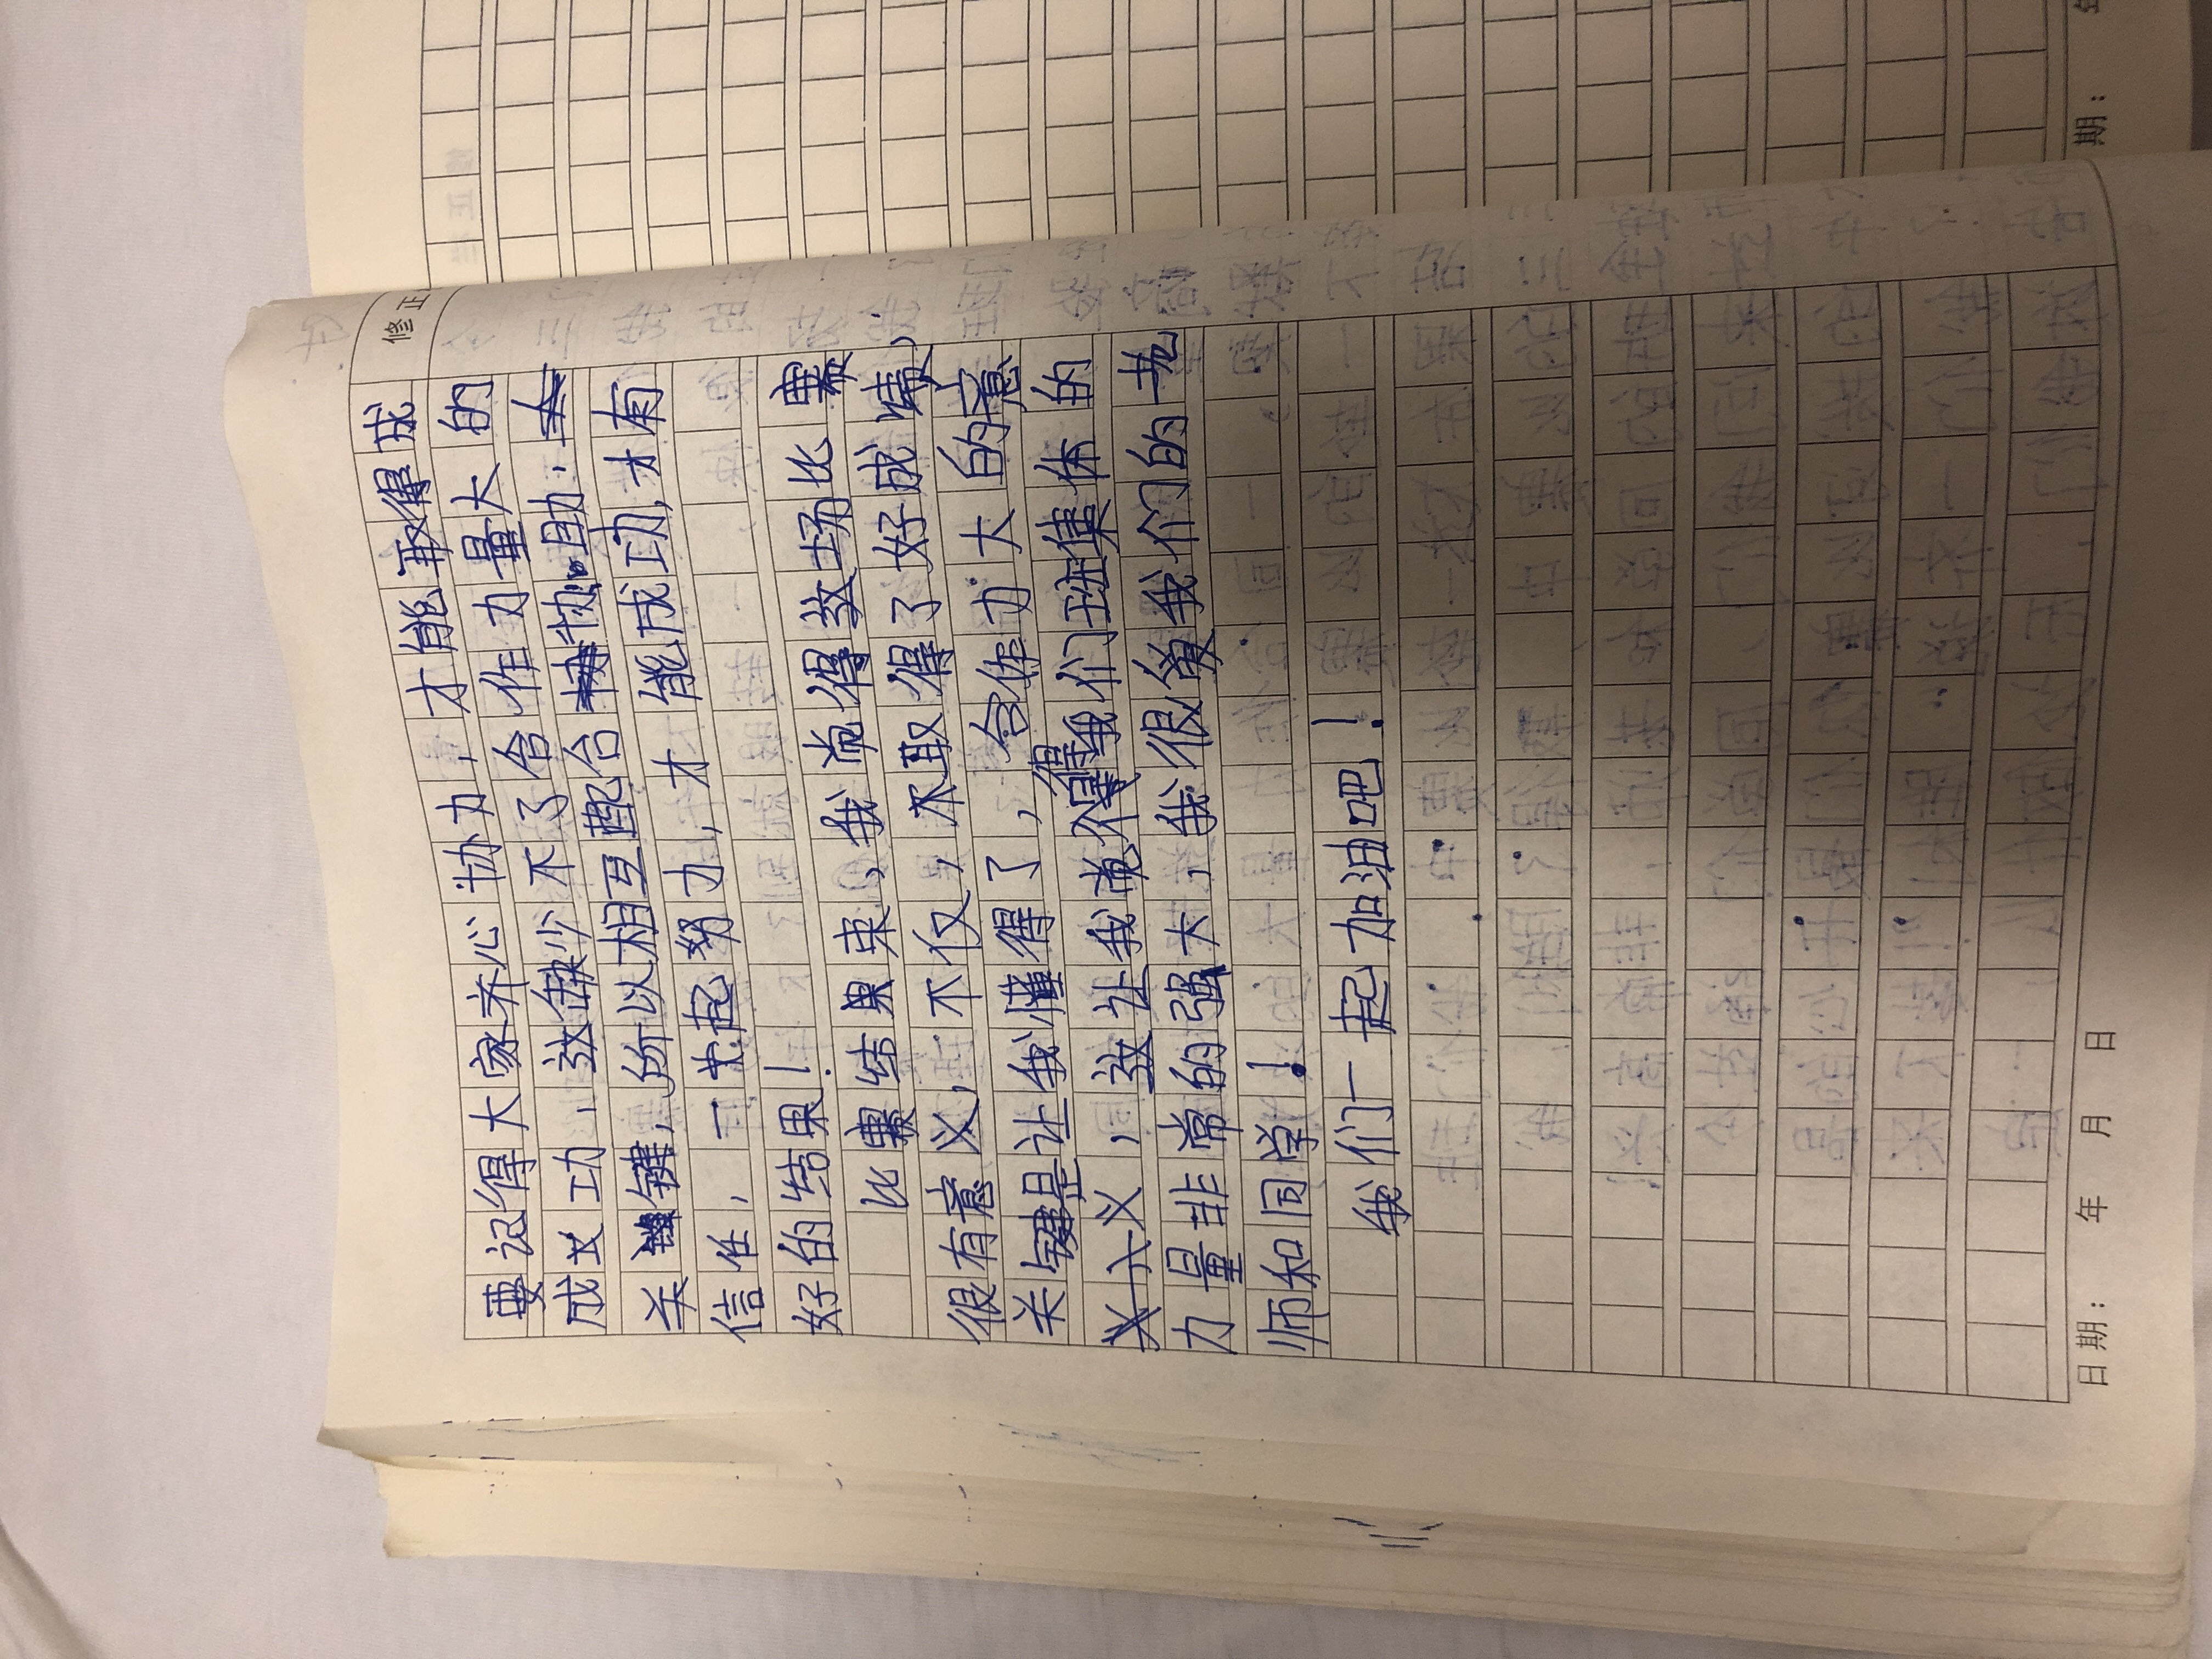 修正
要记得大家齐心协力,才能取得成
成功,这缺少不了合作力量大的
关键,所以相互配合协助.
信任,一起努力,才能成功,才有
好的结果!
比赛结果束,我觉得这场比赛
很有意义,不仅,不取得了好成绩,
关键是让我懂得了,合作力大的意
义,这让我觉得我们班集体的
力量非常的强大,我很爱我们的老
师和同学!
我们一起加油吧!
日期: 年 月 日
期: 年